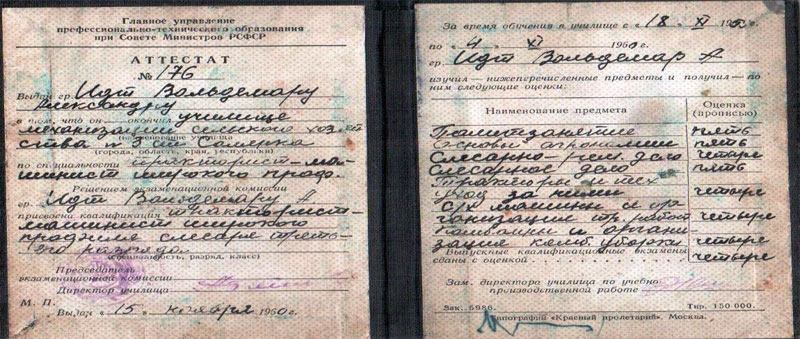 Главное управление
профессионально-технического образования
при Совете Министров РСФСР
АТТЕСТАТ
№ 176
Выдан гр. Идт Вольдемару
Александру
в том, что он окончил училище
механизации сельского хозяй
ства № 3 ст.
(наименование училища)
(города, область, края, республики)
по специальности тракторист-ма-
шинист широкого проф.
Решением экзаменационной комиссии
гр. Идт Вольдемару А
присвоена квалификация тракторист-
машинист широкого
слесаря треть-
его разряда
(специальность, разряд, класс)
Председатель
экзаменационной комиссии
Директор училища
М. П.
Выдан «15» ноября 1960г.
За время обучения в училище с «18» XI
по «4» XI 1960г.
гр. Идт Вольдемар А
изучил — нижеперечисленные предметы и получил — по
ним следующие оценки:
Наименование предмета Оценка (прописью)
Политзанятие пять
Основы агрономии пять
Слесарно-рем. дело четыре
Слесарное дело пять
Тракторы и тех
уход за ними четыре
С/х машины и ор-
ганизация тр. работ четыре
Комбайны и органи-
зация комб. уборки четыре
Выпускные квалификационные экзамены
сданы с оценкой четыре
Зам. директора училища по учебно-
производственной работе
Зак. 6986. Тир. 150 000.
Типография «Красный пролетарий», Москва.